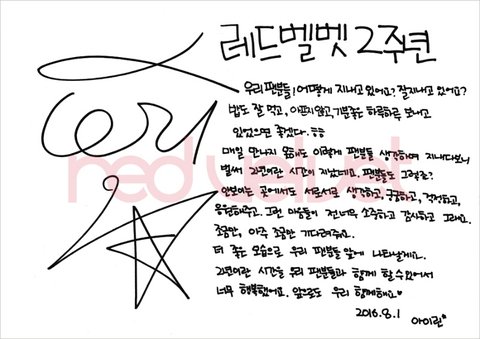 레드벨벳 2주년
우리 팬분들! 어떻게 지내고 있어요? 잘지내고 있어요?
밥도 잘 먹고, 아프지않고, 기분좋은 하루하루 보내고
있었으면 좋겠다. ㅎㅎ
매일 만나지 못해도 이렇게 팬분들 생각하며 지내다보니
벌써 2년이란 시간이 지났네요. 팬분들도 그렇죠?
안보이는 곳에서도 서로서로 생각하고, 궁금하고, 걱정하고,
응원해주고. 그런 마음들이 전 너무 소중하고 감사하고 그래요.
조금만, 아주 조금만 기다려주요.
더 좋은 모습으로 우리 팬분들 앞에 나타날게요.
2년이란 시간을 우리 팬분들과 함께 할 수 있어서
너무 행복했어요. 앞으로도 우리 함께해요♡
2016.8.1 아이린
red velvet